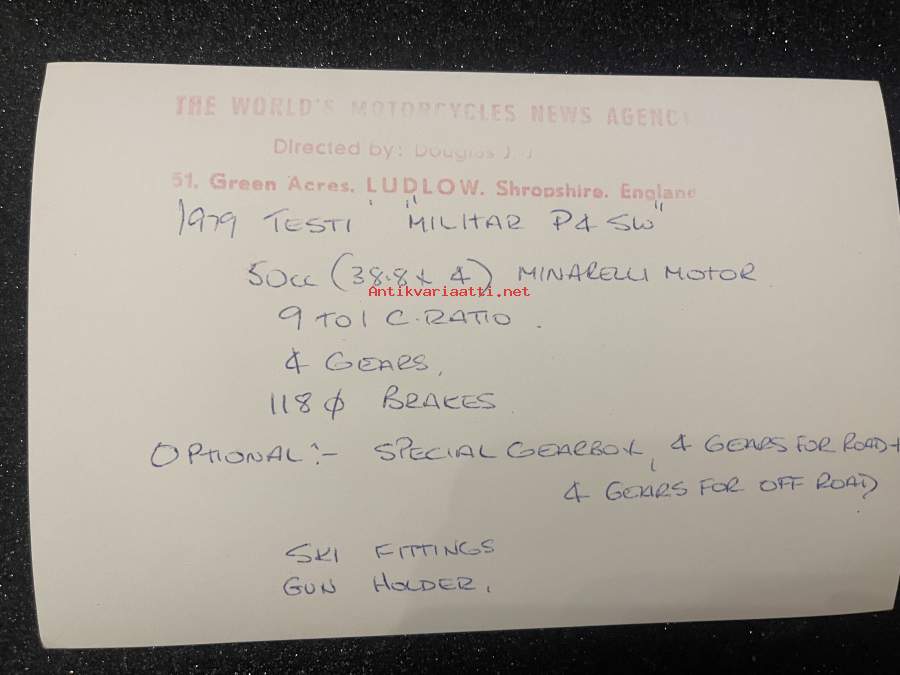 THE WORLD'S MOTORCYCLES NEWS AGENCY
Directed by: Douglas J. J
51, Green Acres, LUDLOW. Shropshire. England
1979 TESTI "MILITAR P4 SW"
50cc (38.8 x 4) MINARELLI MOTOR
Antikvariaatti.net
9 TO 1 C. RATIO.
4 GEARS,
118 ϕ BRAKES
OPTIONAL:- SPECIAL GEARBOX, 4 GEARS FOR ROAD +
4 GEARS FOR OFF ROAD
SKI FITTINGS
GUN HOLDER.